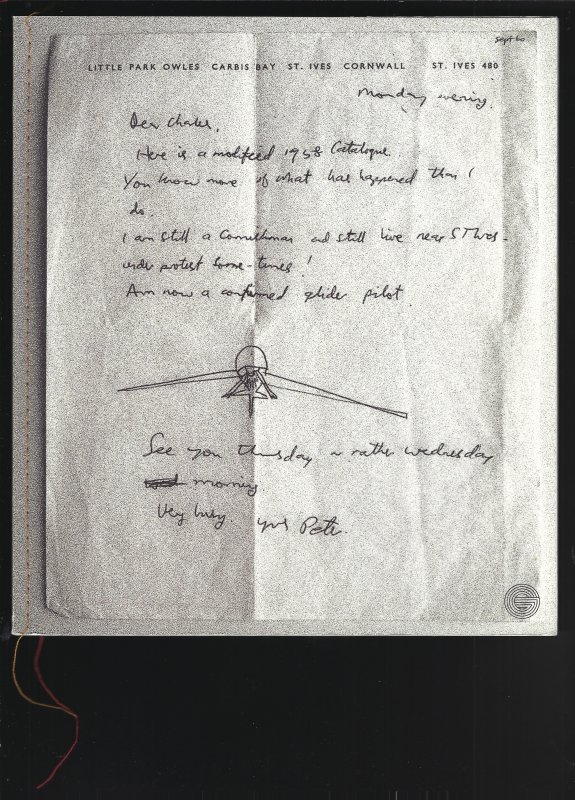 Sept 60
LITTLE PARK OWLES CARBIS BAY ST. IVES CORNWALL ST. IVES 480
Monday evening.
Dear Charles,
Here is a modified 1958 Catalogue.
You know more of what has happened than I
do.
I am still a Cornishman and still live near St Ives -
under protest some-times!
Am now a confirmed glider pilot.
See you thursday or rather wednesday
morning
Very busy. yrs Peter.